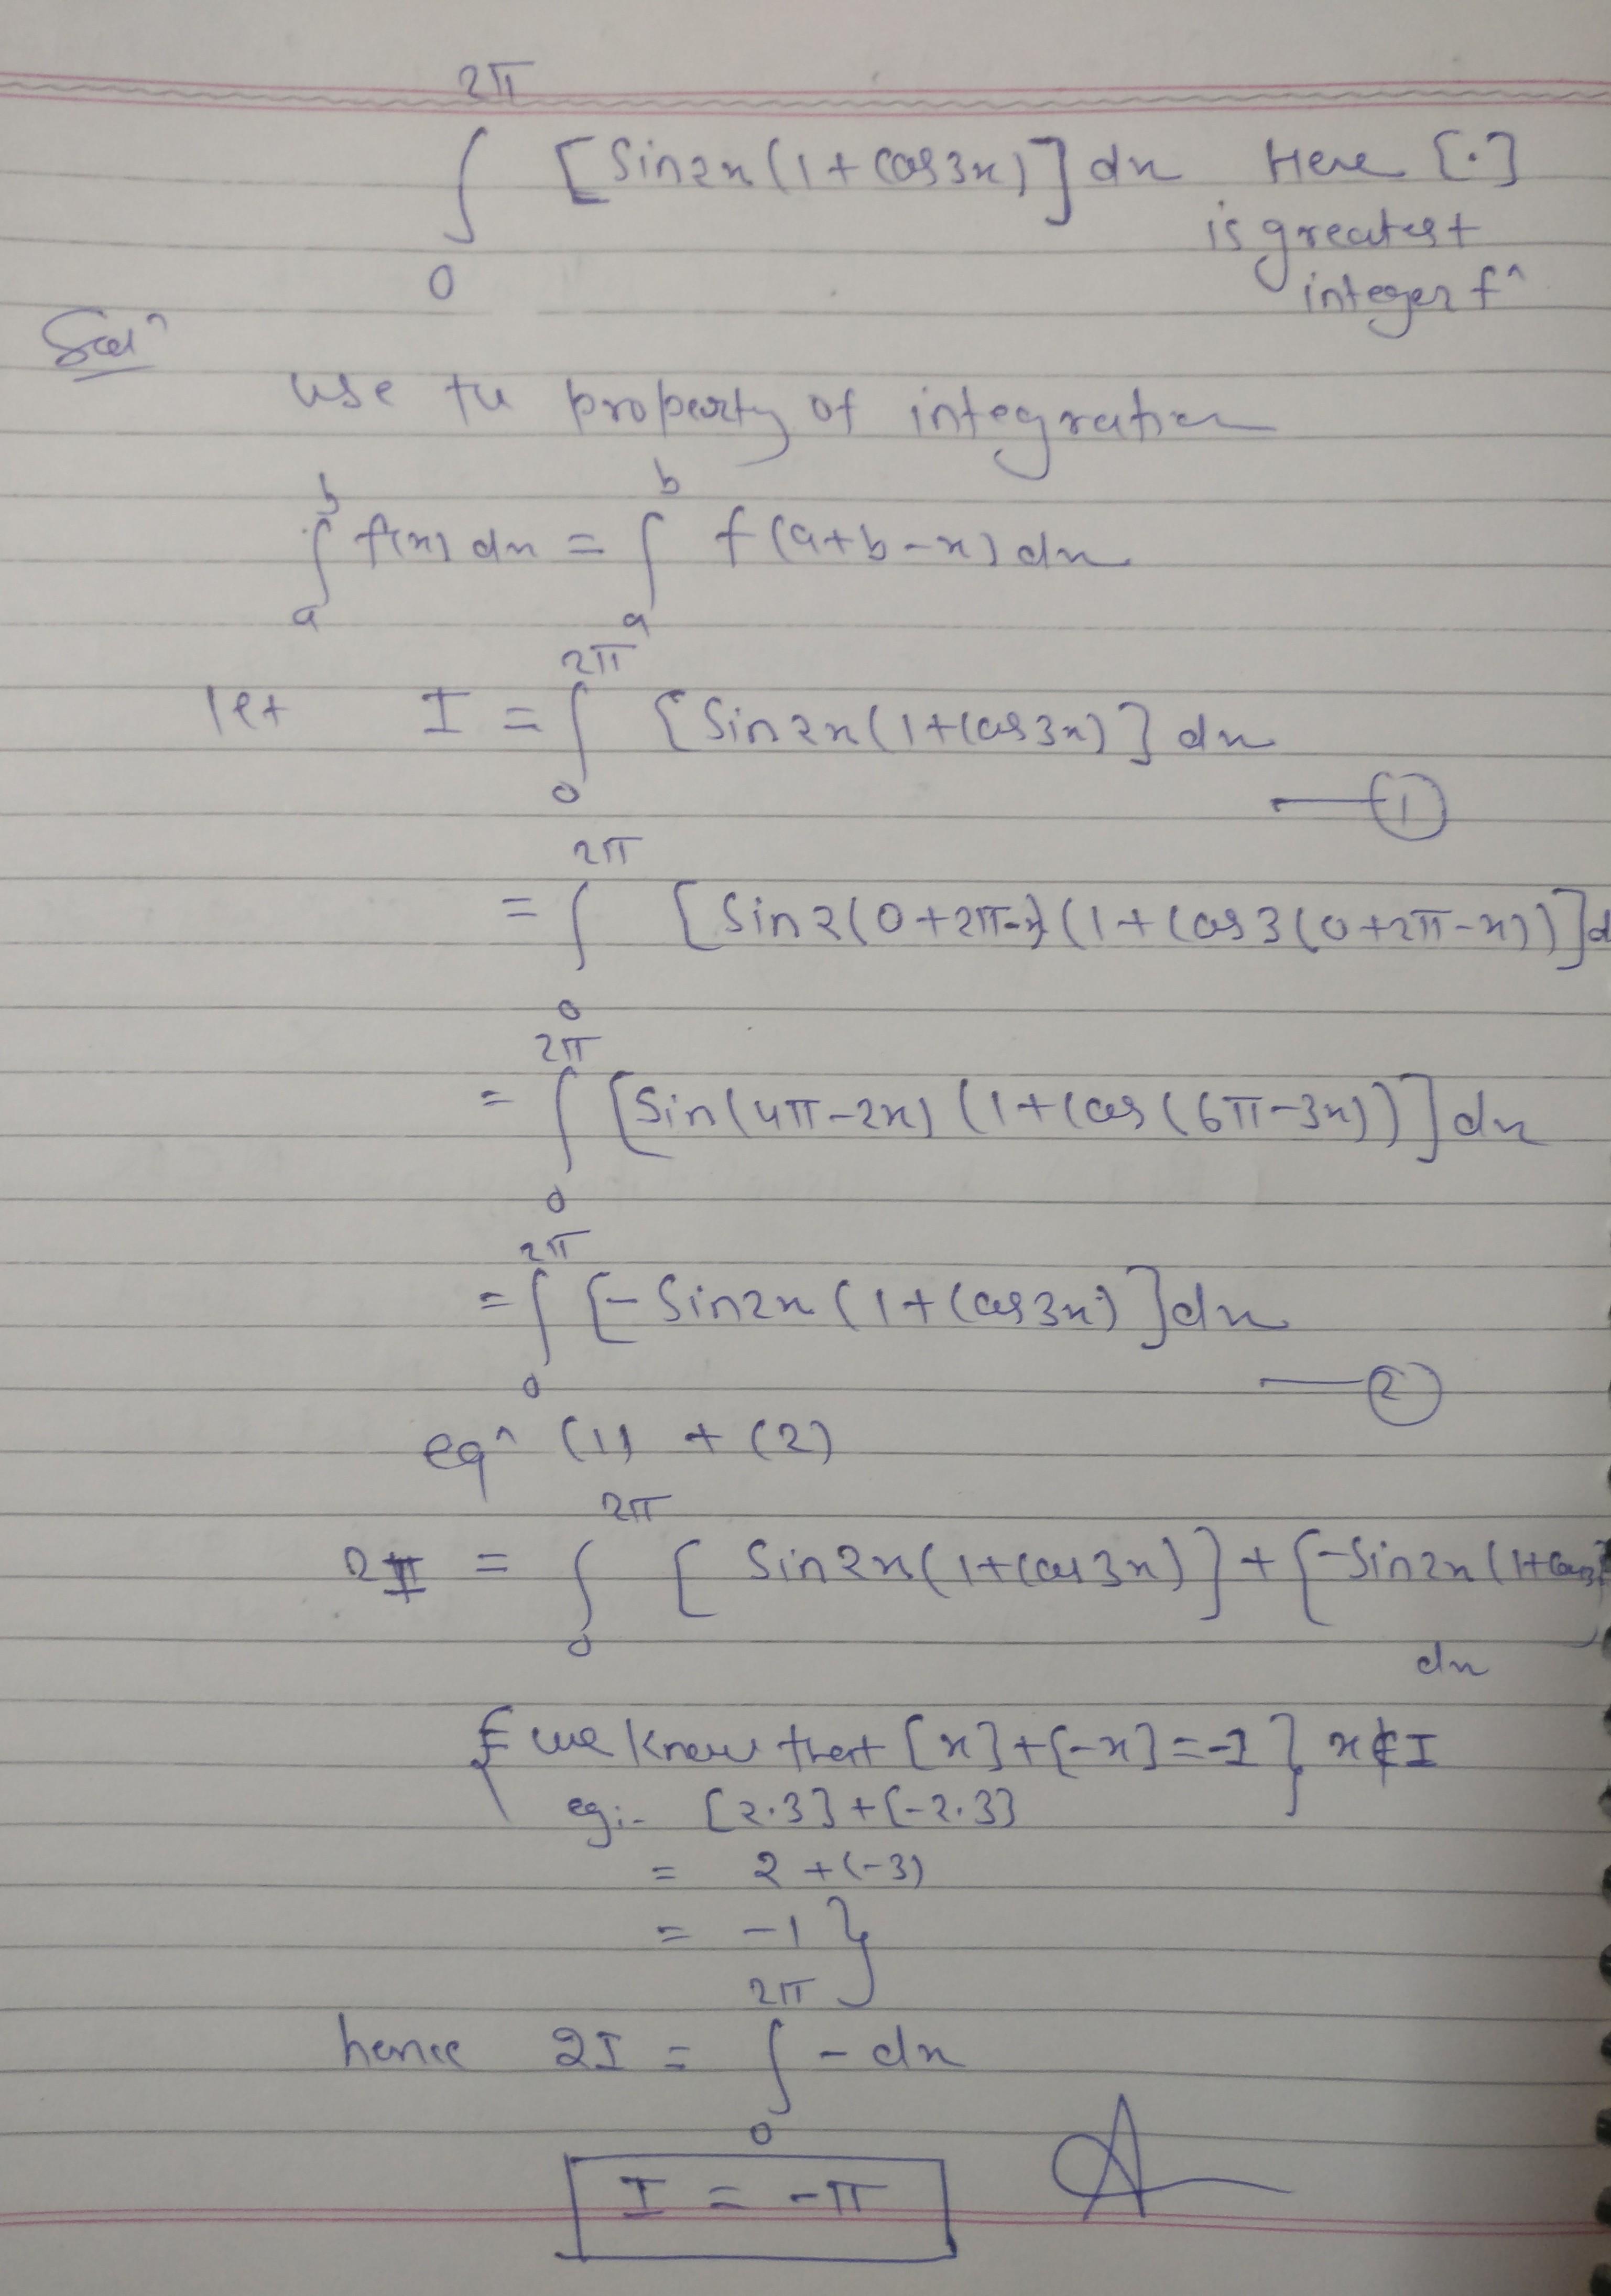 2π
∫ [Sin2x(1+cos3x)] dx Here [·]
0
is greatest
integer fⁿ
Solⁿ
use the property of integration
b b
∫ f(x) dx = ∫ f(a+b-x) dx
a a
2π
let I = ∫ [Sin2x(1+cos3x)] dx
0
—①
2π
= ∫ [Sin2(0+2π-x)(1+cos3(0+2π-x))]d
0
2π
= ∫ [Sin(4π-2x) (1+cos(6π-3x))] dx
0
2π
= ∫ [-Sin2x(1+cos3x)] dx
0
—②
eqⁿ (1) + (2)
2π
2I = ∫ [Sin2x(1+cos3x)] + [-Sin2x(1+cos3x]
0
dx
{we know that [x]+[-x]=-1} x∉I
eg:- [2.3]+[-2.3]
= 2+(-3)
= -1}
2π
hence 2I = ∫ -dx
0
I = -π